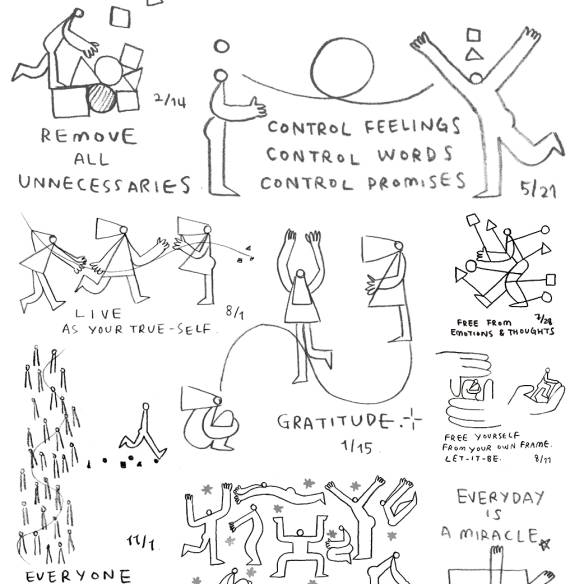 2/14
REMOVE
ALL
UNNECESSARIES
CONTROL FEELINGS
CONTROL WORDS
CONTROL PROMISES
5/21
LIVE 8/1
AS YOUR TRUE-SELF.
FREE FROM 7/28
EMOTIONS & THOUGHTS
GRATITUDE.
1/15
FREE YOURSELF
FROM YOUR OWN FRAME.
LET-IT-BE. 8/11
11/1
EVERYONE
EVERYDAY
IS
A MIRACLE